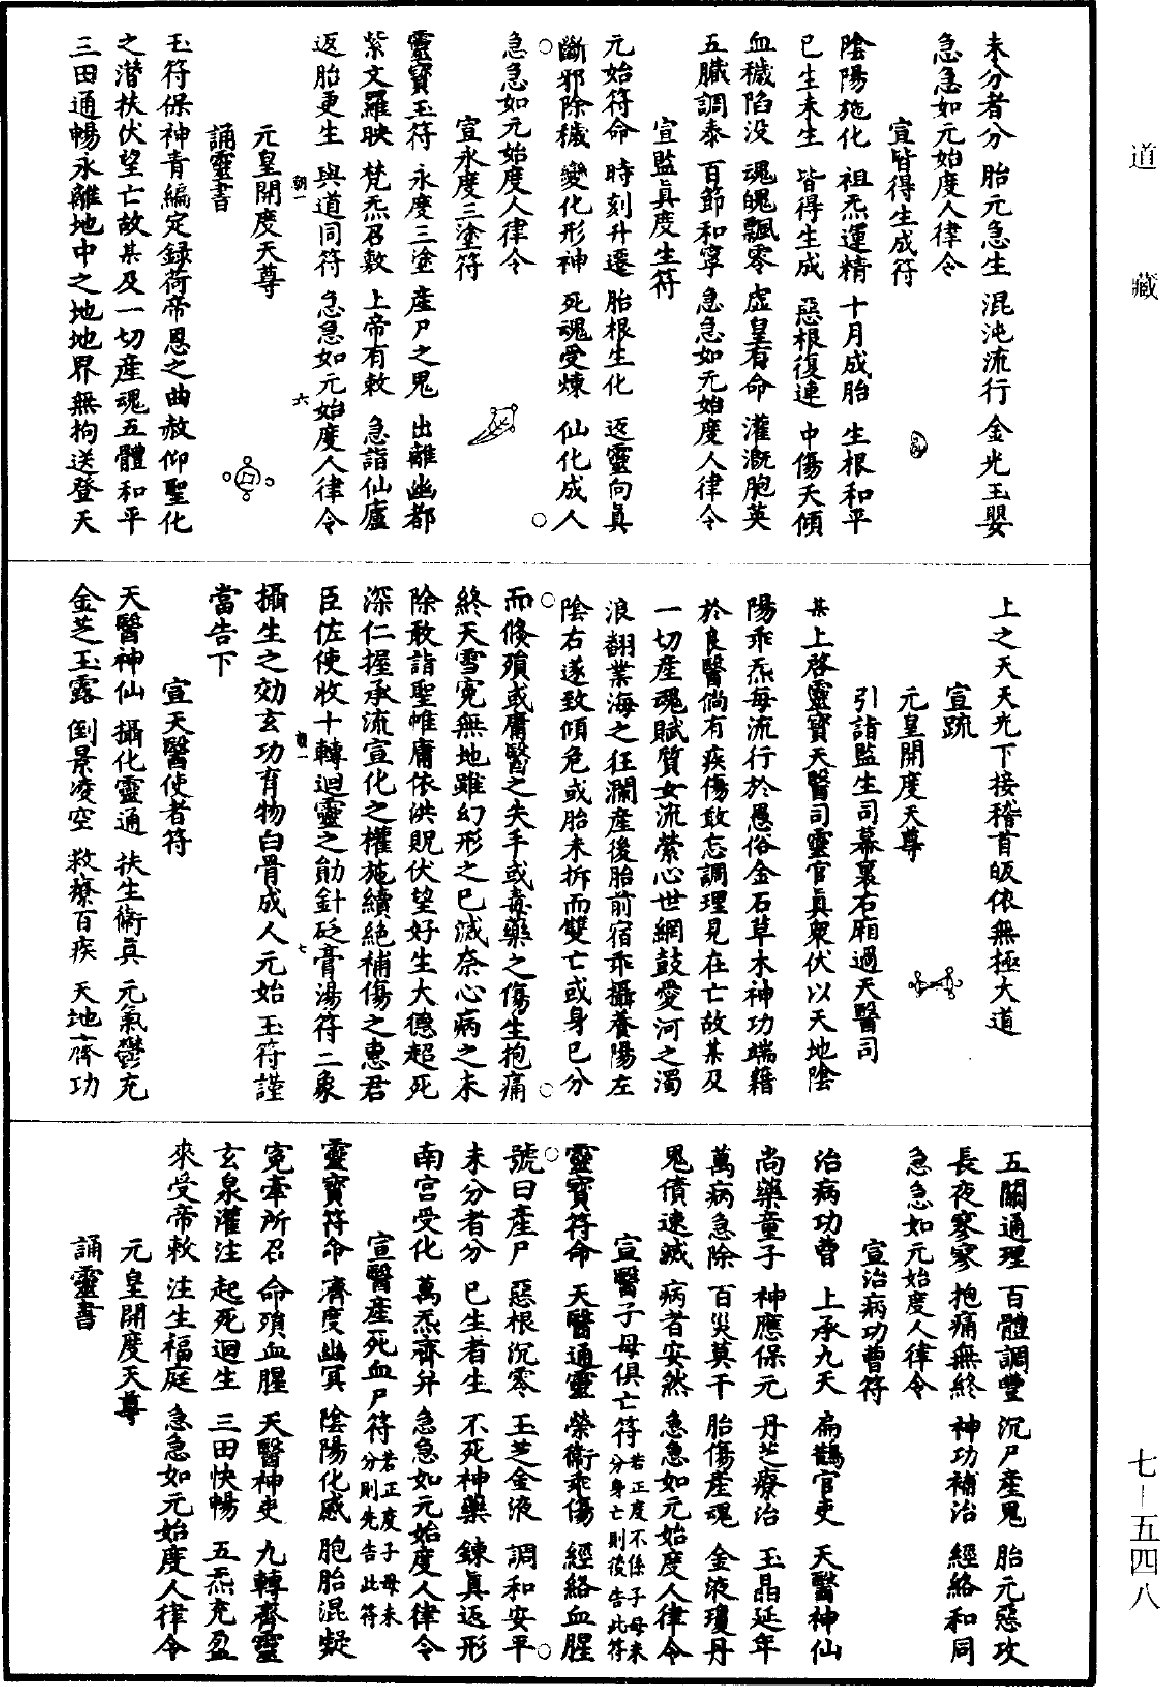 未分者分　胎元急生　混沌流行　金光玉嬰
急急如元始度人律令
宣皆得生成符
陰陽施化　祖炁運精　十月成胎　生根和平
已生未生　皆得生成　惡根復連　中傷天傾
血穢陷没　魂魄飄零　虚皇有命　灌溉胞英
五臟調泰　百節和寧　急急如元始度人律令
宣監眞度生符
元始符命　時刻升遷　胎根生化　返靈向眞
斷邪除穢　變化形神　死魂受煉　仙化成人
急急如元始度人律令
宣永度三塗符
靈寳玉符　永度三塗　産尸之鬼　出離幽都
紫文羅映　梵炁召敷　上帝有敕　急詣仙廬
返胎更生　與道同符　急急如元始度人律令
朝一　六
元皇開度天尊
誦靈書
玉符保神青編定録荷帝恩之曲赦仰聖化
之潜扶伏望亡故某及一切産魂五體和平
三田通暢永離地中之地地界無拘送登天
上之天天光下接稽首皈依無極大道
宣疏
元皇開度天尊
引詣監生司幕裏右廂過天醫司
某上啓靈寳天醫司靈官眞衆伏以天地陰
陽乖炁每流行於愚俗金石草木神功端藉
於良醫倘有疾傷敢忘調理見在亡故某及
一切産魂賦質女流縈心世網鼓愛河之濁
浪翻業海之狂瀾産後胎前宿乖攝養陽左
陰右遂致傾危或胎未拆而雙亡或身已分
而倏殞或庸醫之失手或毒藥之傷生抱痛
終天雪寃無地雖幻形之已滅奈心病之未
除敢詣聖帷庸依洪貺伏望好生大德超死
深仁握承流宣化之權施續絶補傷之惠君
臣佐使收十轉迴靈之勛針砭膏湯符二象
朝一　七
攝生之効玄功育物白骨成人元始玉符謹
當告下
宣天醫使者符
天醫神仙　攝化靈通　扶生衛眞　元氣鬱充
金芝玉露　倒景凌空　救療百疾　天地齊功
五關通理　百體調豐　沉尸産鬼　胎元惡攻
長夜寥寥　抱痛無終　神功補治　經絡和同
急急如元始度人律令
宣治病功曹符
治病功曹　上承九天　扁鵲官吏　天醫神仙
尚藥童子　神應保元　丹芝療治　玉晶延年
萬病急除　百災莫干　胎傷産魂　金液瓊丹
鬼債速滅　病者安然　急急如元始度人律令
宣醫子母俱亡符若正度不係子母未分身亡則後告此符
靈寳符命　天醫通靈　榮衛乖傷　經絡血腥
號曰産尸　惡根沉零　玉芝金液　調和安平
未分者分　已生者生　不死神藥　鍊眞返形
南宫受化　萬炁齊并　急急如元始度人律令
宣醫産死血尸符若正度子母未分則先告此符
靈寳符命　濟度幽冥　陰陽化感　胞胎混凝
寃牽所召　命殞血腥　天醫神吏　九轉齊靈
玄泉灌注　起死迴生　三田快暢　五炁充盈
來受帝敕　注生福庭　急急如元始度人律令
元皇開度天尊
誦靈書
道藏
七－五四八